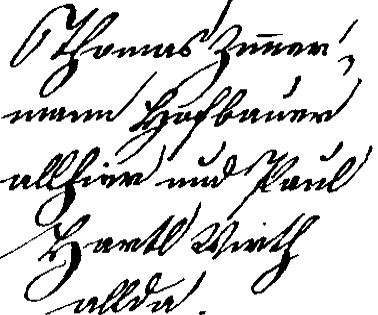 Thomas Zim̅er=
mann Hofbauer
allhier und Paul
Hartl Wirth
allda.